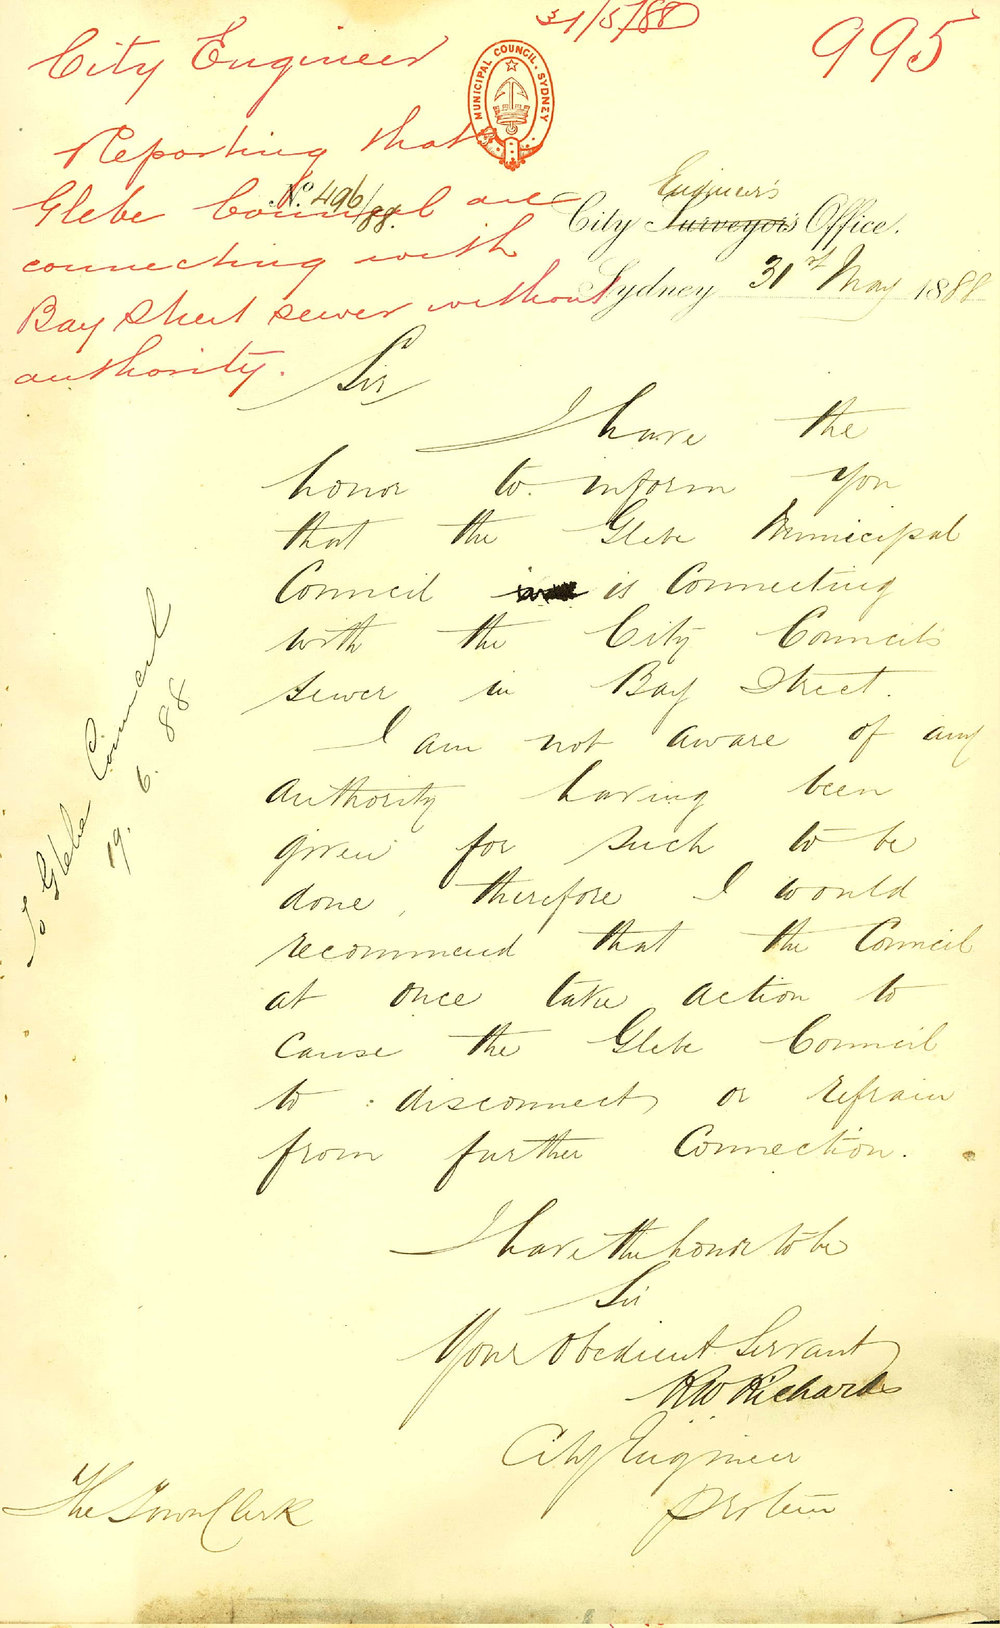 31/5/88
995
City Engineer
Reporting that
Glebe Council are
connecting with
Bay Street sewer without
authority.
MUNICIPAL COUNCIL. SYDNEY
No. 496/88.
Engineer's
City Surveyor's Office.
Sydney 31st May 1888
Sir
I have the
honor to inform you
that the Glebe Municipal
Council is connecting
with the City Council's
sewer in Bay Street.
I am not aware of any
authority having been
given for such to be
done, therefore I would
recommend that the Council
at once take action to
cause the Glebe Council
to disconnect or refrain
from further connection.
I have the honor to be
Sir
Your obedient Servant
RW Richards
City Engineer
protem
The Town Clerk
To Glebe Council
19. 6. 88